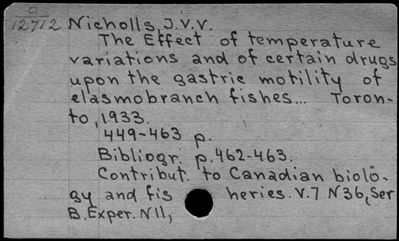 a
12712 Nicholls, J.V.V.
The Effect of temperature
variations and of certain drugs
upon the gastric motility of
elasmobranch fishes... Toron-
to, 1933.
449-463 p.
Bibliogr. p. 462-463.
Contribut. to Canadian biolo-
gy and fis heries. V.7 N36, Ser
B. Exper. N11,